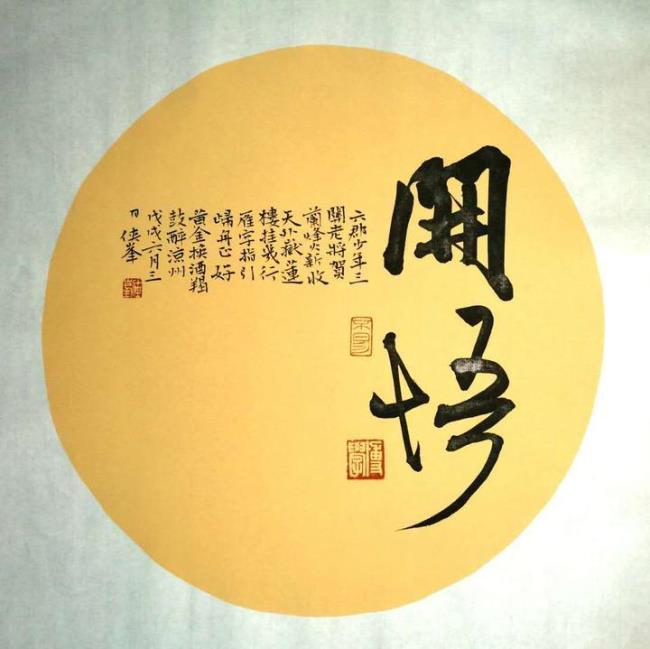 開悟
六郡少年三
關老將賀
蘭烽火新收
天外嶽蓮
樓挂幾行
雁字指引
歸舟正好
黃金換酒羯
鼓醉涼州
戊戌六月三
日俠峯